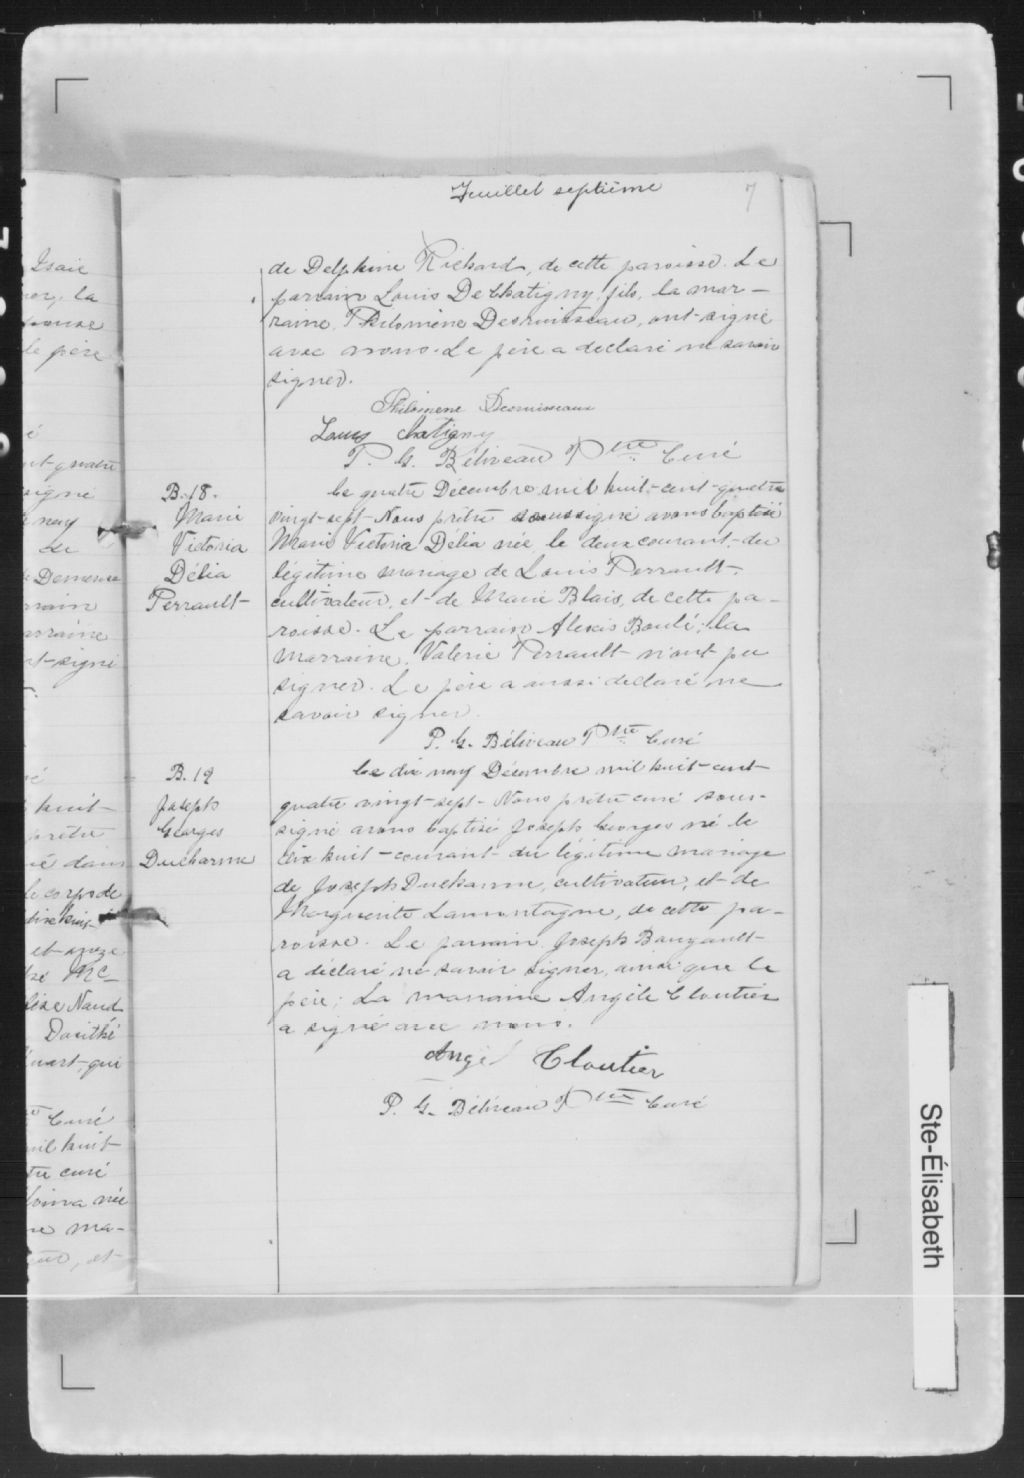 Feuillet septième
7
de Delphine Richard, de cette paroisse. Le
parrain Louis DeChatigny, fils, la mar-
raine, Philomène Desruisseau, ont signé
avec nous. Le père a déclaré ne savoir
signer.
Philomene Desruisseaux
Louis Chatigny
P. G. Béliveau Ptre Curé
B. 18.
Marie
Victoria
Délia
Perrault
Le quatre Décembre mil huit-cent-quatre
vingt-sept Nous prêtre soussigné avons baptisé
Marie Victoria Délia née le deux courant, du
légitime mariage de Louis Perrault,
cultivateur, et de Marie Blais, de cette pa-
roisse. Le parrain Alexis Boulé; la
marraine, Valerie Perrault n'ont pu
signer. Le père a aussi déclaré ne
savoir signer.
P. G. Béliveau Ptre Curé
B. 19
Joseph
Georges
Ducharme
Le dix neuf Décembre mil huit-cent
quatre vingt-sept Nous prêtre curé sous-
signé avons baptisé Joseph Georges né le
dix huit courant du légitime mariage
de Joseph Ducharme, cultivateur, et de
Marguerite Lamontagne, de cette pa-
roisse. Le parrain Joseph
a déclaré ne savoir signer, ainsi que le
père; La marraine Angèle Cloutier
a signé avec nous.
Angel Cloutier
P. G. Béliveau Ptre Curé
Isaie
la
le père
quatre
signé
neuf
de
signé
huit
prêtre
dans
le corps de
et onze
Mc
Naud
Dosithé
qui
Curé
mil huit
curé
née
ma-
et
Ste-Élisabeth